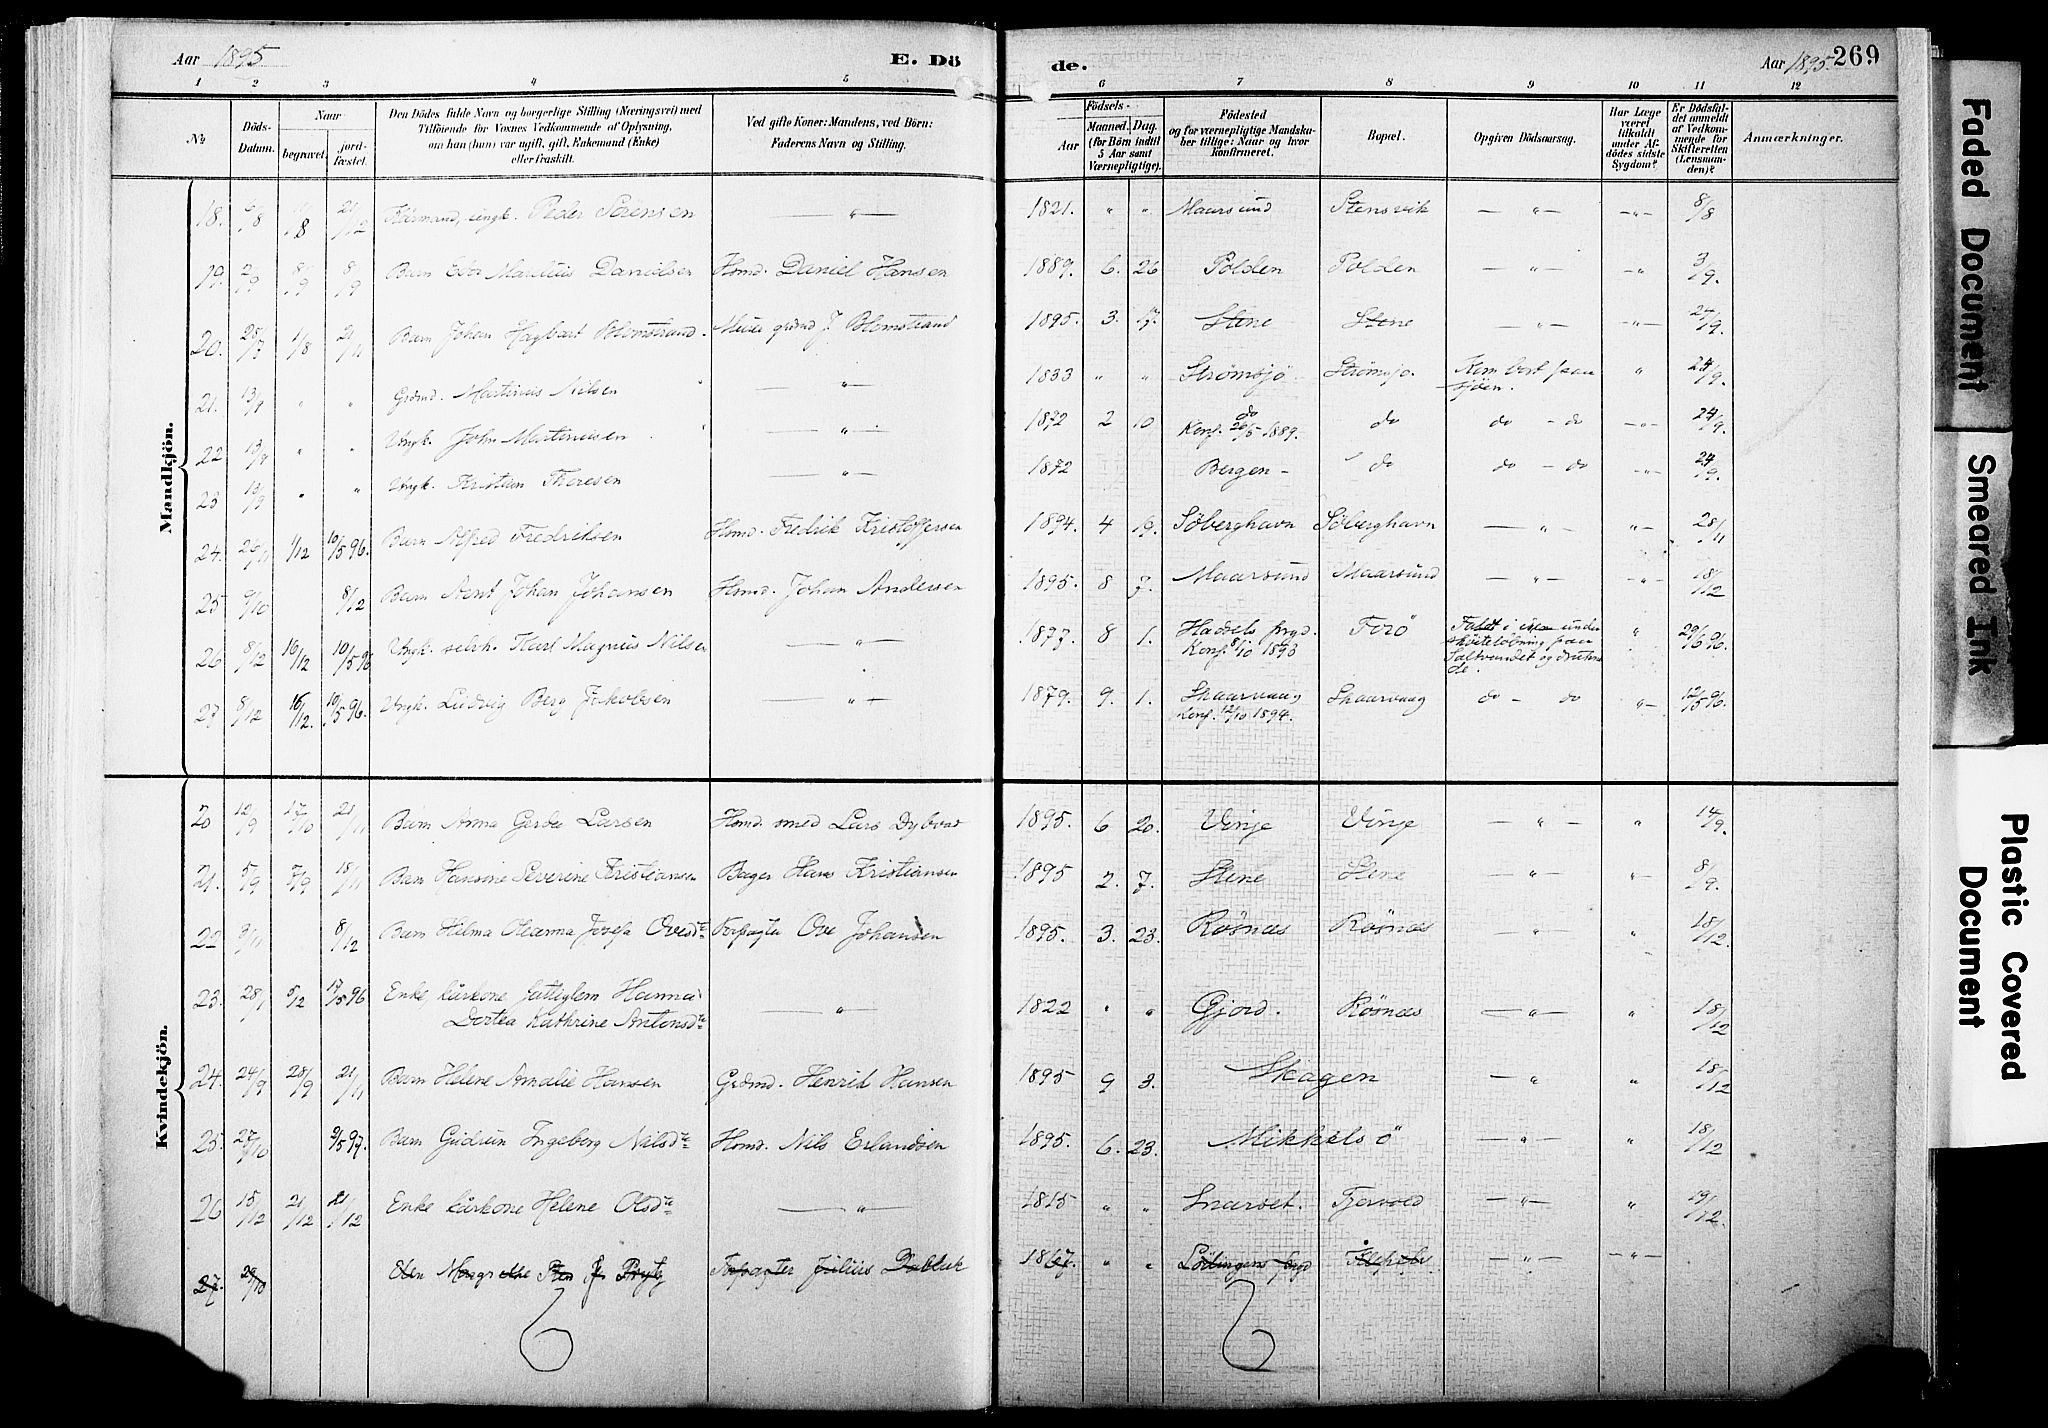 Aar 1895
E. Dö
de.
Aar 1895.
269
1 2 3 4 5 6 7 8 9 10 11 12
No
Döds-Datum.
Naar
begravet.
jordfæstet.
Den Dödes fulde Navn og borgerlige Stilling (Næringsvei) med
Tilföiende for Voxnes Vedkommende af Oplysning,
om han (hun) var ugift, gift, Enkemand (Enke)
eller fraskilt.
Ved gifte Koner: Mandens, ved Börn:
Faderens Navn og Stilling.
Födsels-
Aar
Maaned. Dag.
(for Börn indtil
5 Aar samt
Værnepligtige).
Födested
og for værnepligtige Mandska-
ber tillige: Naar og hvor
Konfirmeret.
Bopæl.
Opgiven Dödsaarsag.
Har Læge
været
tilkaldt
under Af-
dödes sidste
Sygdom?
Er Dödsfal-
det anmeldt
af Vedkom-
mende for
Skifteretten
(Lensman-
den)?
Anmærkninger.
Mandkjön.
18. Peder Sörensen — " — 1821. " " Maarsund Stensvik — " — — " — 8/8
19. 2/9 8/9 8/9 Barn Edor Marelius Danielsen Hmd. Daniel Hansen 1889. 6. 26 Polden Polden — " — — " 3/9.
20. 1/8 21/11 Barn Johan Hagbart Blomstrand. J. Blomstrand 1895. 3. 17. Stene Stene — " — — " — 24/9.
21. 13/9 " " Grdmd. Martinus Nilsen — " — 1833 " " Strömsjö Strömsjö. Kom bort paa sjöen. " 24/9.
22 13/9 " " Ungk. John Martinusen — " — 1872 2 10 do Konf. 26/5 1889. do do - do — " — 24/9.
23 13/9 " " Ungk. Kristian Thoresen — " — 1872 Bergen - do do - do — " — 24/9.
24. 26/11 1/12 10/5 96. Barn Alfred Fredriksen Hmd. Fredrik Kristoffersen 1894. 4 19. Söberghavn Söberghavn — " — " — 28/11
25 9/10 8/12 Barn Arnt Johan Johansen Hmd. Johan Andersen 1895. 8 7. Maarsund Maarsund — " — — " — 18/12
26 8/12 16/12 10/5 96 Ungk. selvh. Karl Magnus Nilsen — " — 1877. 8 1. Hadsels prgd. Konf. 8/10 1893 Forö Faldt i isen under sköiteløbning paa Saltvandet og druknede. " 29/6 96.
27 8/12 16/12. 10/5 96. Ungk. Ludvig Berg Jakobsen — " — 1879. 9. 1. Skaarvaag Konf. 12/10 1894. Skaarvaag do - do " — 12/5 96.
Kvindekjön.
20 12/9 17/10 21/11 Barn Anna Gerda Larsen Hmd. smed Lars Dybvad 1895. 6 20. Vinje Vinje — " — " 14/9.
21. 5/9 7/9 18/11 Barn Hansine Severine Kristiansen Bager Hans Kristiansen 1895 2. 7. Stene Stene — " — " — 8/9.
22 9/11 8/12 Barn Hilma Oleanna Josefa Ovesdtr Forpagter Ove Johansen 1895. 3. 23. Rösnæs Rösnæs — " — " 18/12.
23. 28/1 5/12 17/5 96 Enke kårkone fattiglem Hanna Dortea Kathrine Antonsdtr — " — 1822 " " Gjerd. Rösnæs — " — " 18/12
24. 24/9 28/9 21/11 Barn Helene Amalie Hansen Grdmd. Henrik Hansen 1895 9 3. Skagen — " " 18/12
25. 27/10 9/5 97. Barn Gudrun Ingeborg Nilsdtr Hmd. Nils Erlandsen 1895. 6. 23. Mikkelsö — " — " 18/12
26 15/12 21/12 21/12 Enke kårkone Helene Olsdtr — " — 1815 " " Snarset. Fjervold — " — " 19/12.
27. 29/10 Forpagter Julius 1867. " " Lödingens prgd — " — — " —
Faded Document
Smeared Ink
Plastic Covered
Document